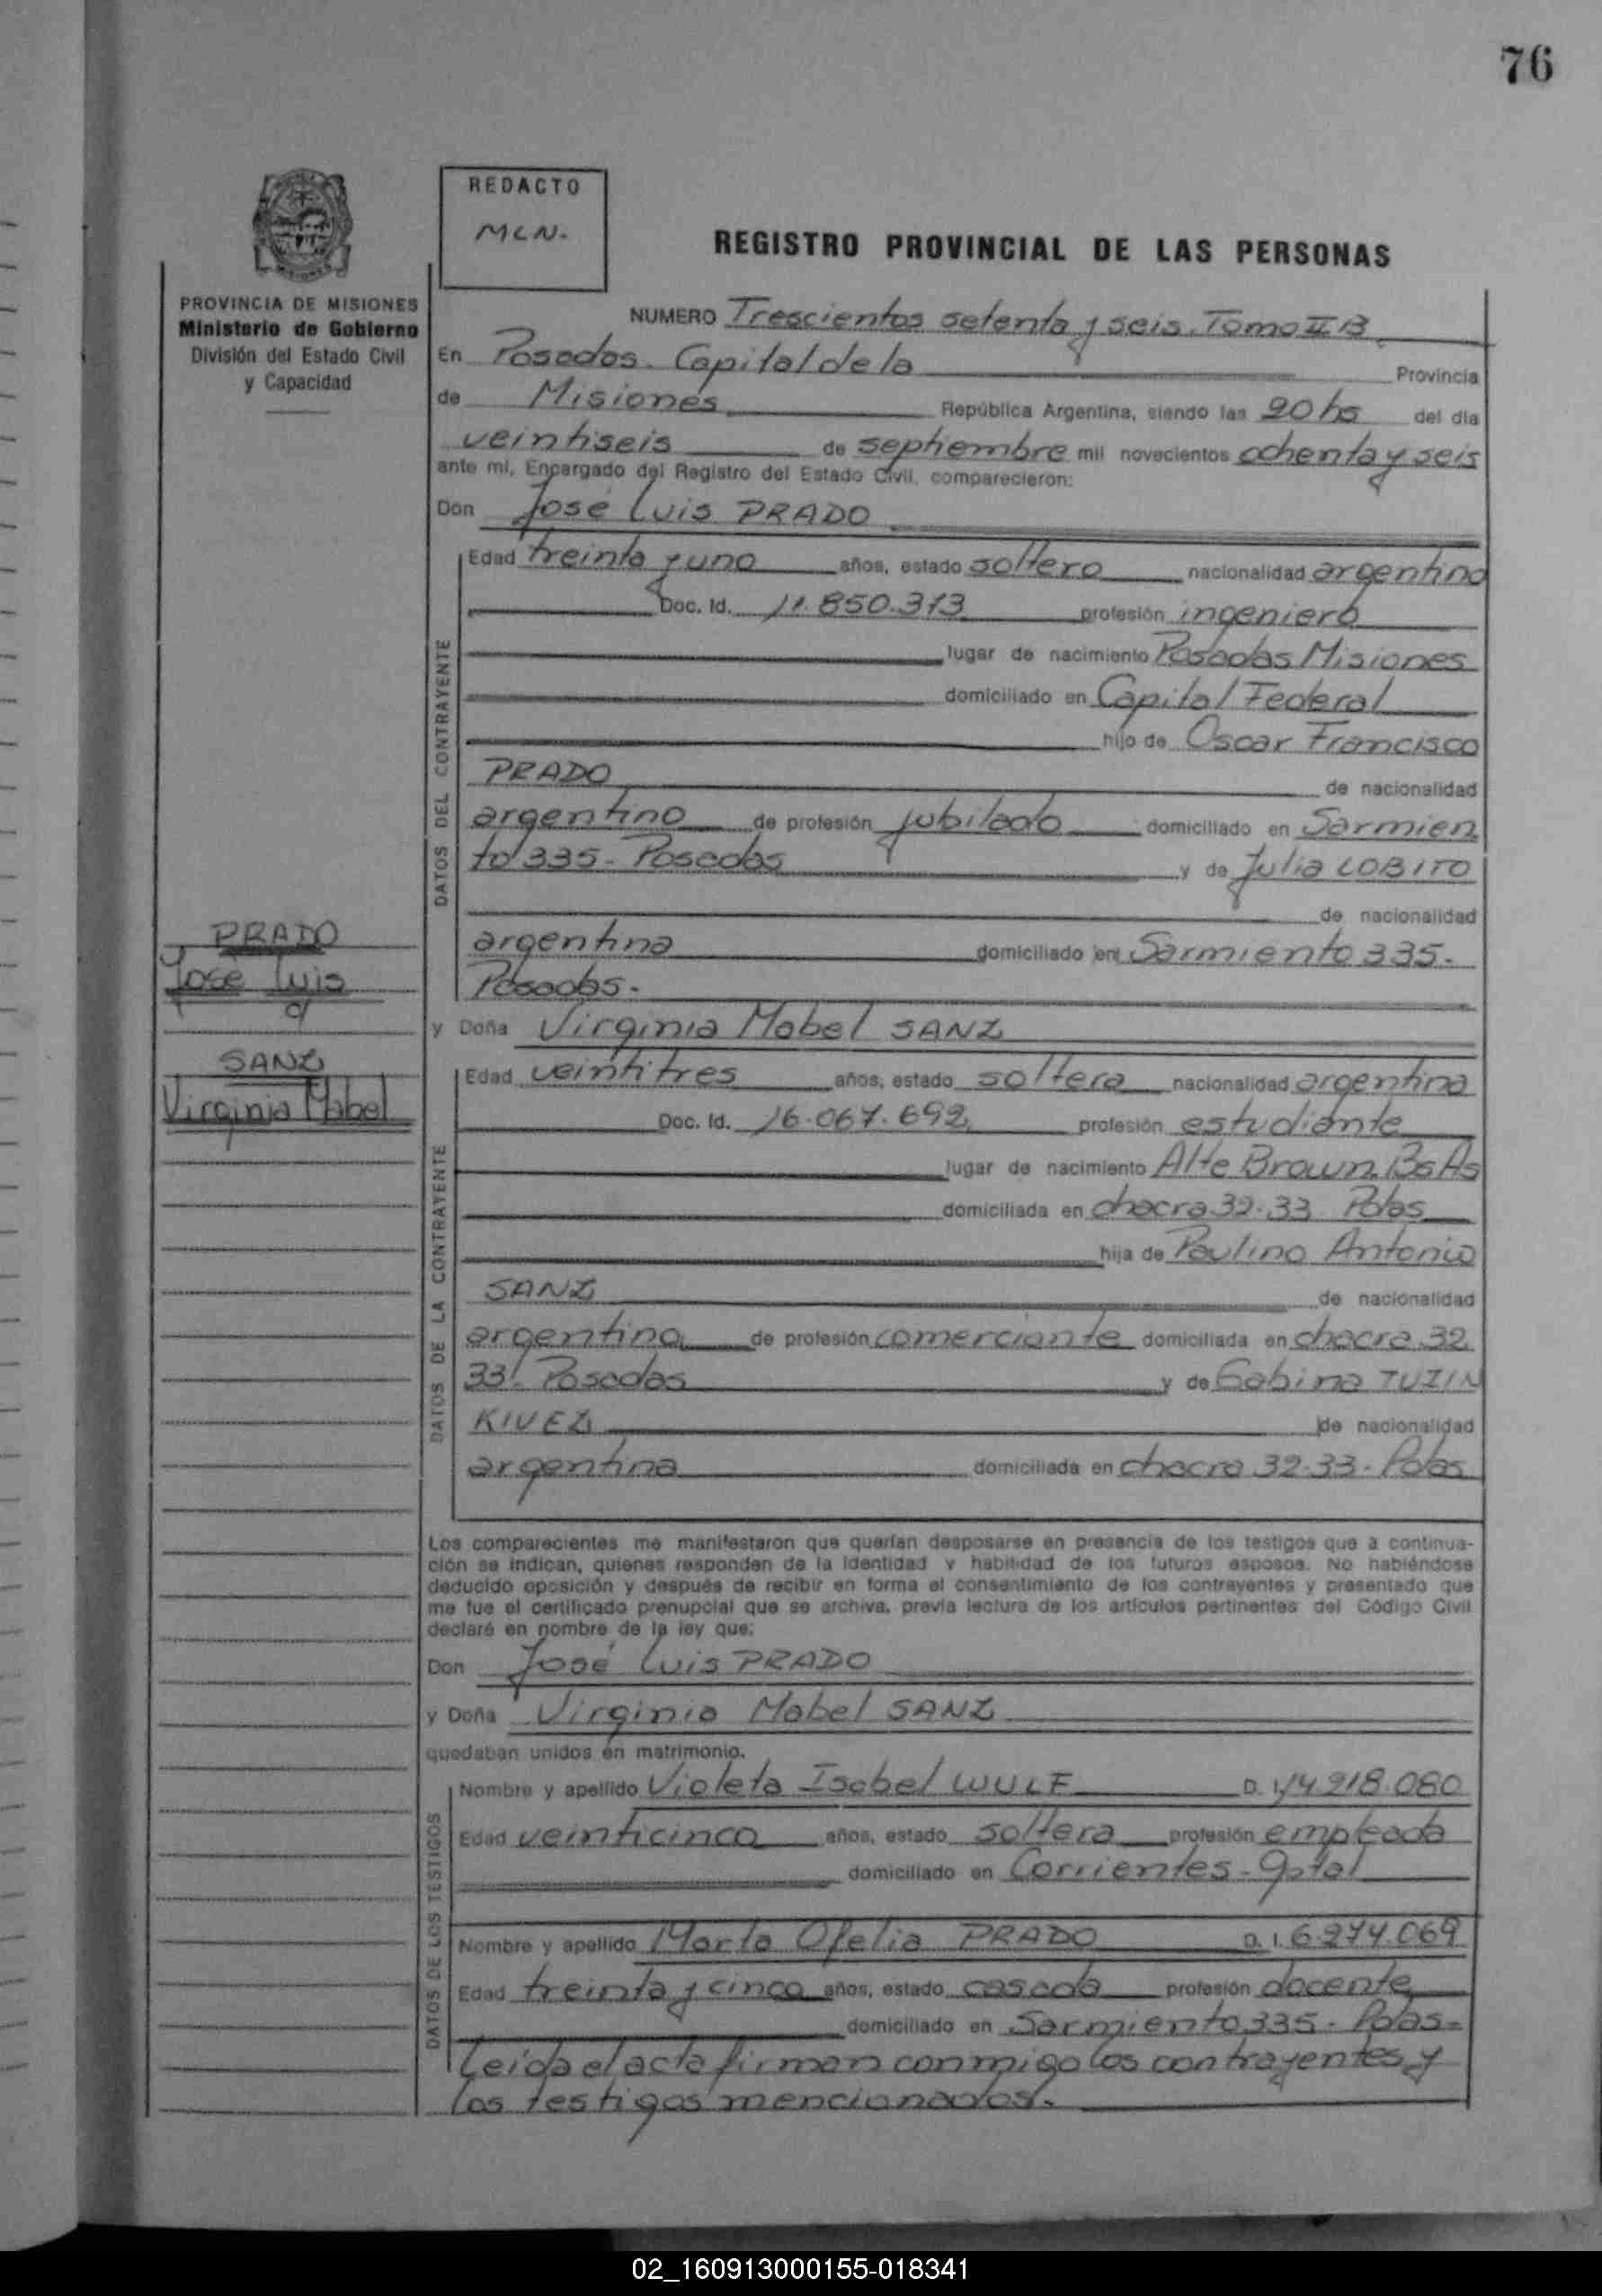 76
REDACTO
MLN.
REGISTRO PROVINCIAL DE LAS PERSONAS
MISIONES
PROVINCIA DE MISIONES
Ministerio de Gobierno
División del Estado Civil
y Capacidad
NUMERO Trescientos setenta y seis. Tomo II B
En Posadas. Capital de la Provincia
de Misiones República Argentina, siendo las 20 hs del día
veintiseis de septiembre mil novecientos ochenta y seis
ante mí, Encargado del Registro del Estado Civil, comparecieron:
Don José Luis PRADO
DATOS DEL CONTRAYENTE
Edad treinta y uno años, estado soltero nacionalidad argentino
Doc. Id. 11.850.313 profesión ingeniero
lugar de nacimiento Posadas Misiones
domiciliado en Capital Federal
hijo de Oscar Francisco
PRADO de nacionalidad
argentino de profesión jubilado domiciliado en Sarmien
to 335- Posadas y de Julia LOBITO
de nacionalidad
argentina domiciliado en Sarmiento 335.
Posadas.
PRADO
José Luis
c/
SANZ
Virginia Mabel
y Doña Virginia Mabel SANZ
DATOS DE LA CONTRAYENTE
Edad veintitres años, estado soltera nacionalidad argentina
Doc. Id. 16.067.692 profesión estudiante
lugar de nacimiento Alte Brown. Bs As
domiciliada en chacra 32-33 Pdas
hija de Paulino Antonio
SANZ de nacionalidad
argentino de profesión comerciante domiciliada en chacra 32
33- Posadas y de Gabina TUZIN
KIVEZ de nacionalidad
argentina domiciliada en chacra 32-33- Pdas
Los comparecientes me manifestaron que querían desposarse en presencia de los testigos que a continua-
ción se indican, quienes responden de la identidad y habilidad de los futuros esposos. No habiéndose
deducido oposición y después de recibir en forma el consentimiento de los contrayentes y presentado que
me fue el certificado prenupcial que se archiva, previa lectura de los artículos pertinentes del Código Civil
declaré en nombre de la ley que:
Don José Luis PRADO
y Doña Virginia Mabel SANZ
quedaban unidos en matrimonio.
DATOS DE LOS TESTIGOS
Nombre y apellido Violeta Isabel WULF D. I. 14.218.080
Edad veinticinco años, estado soltera profesión empleada
domiciliado en Corrientes-
Nombre y apellido Marta Ofelia PRADO D. I. 6.274.069
Edad treinta y cinco años, estado casada profesión docente
domiciliado en Sarmiento 335- Pdas-
Leída el acta firman conmigo los contrayentes y
los testigos mencionados.
02_160913000155-018341